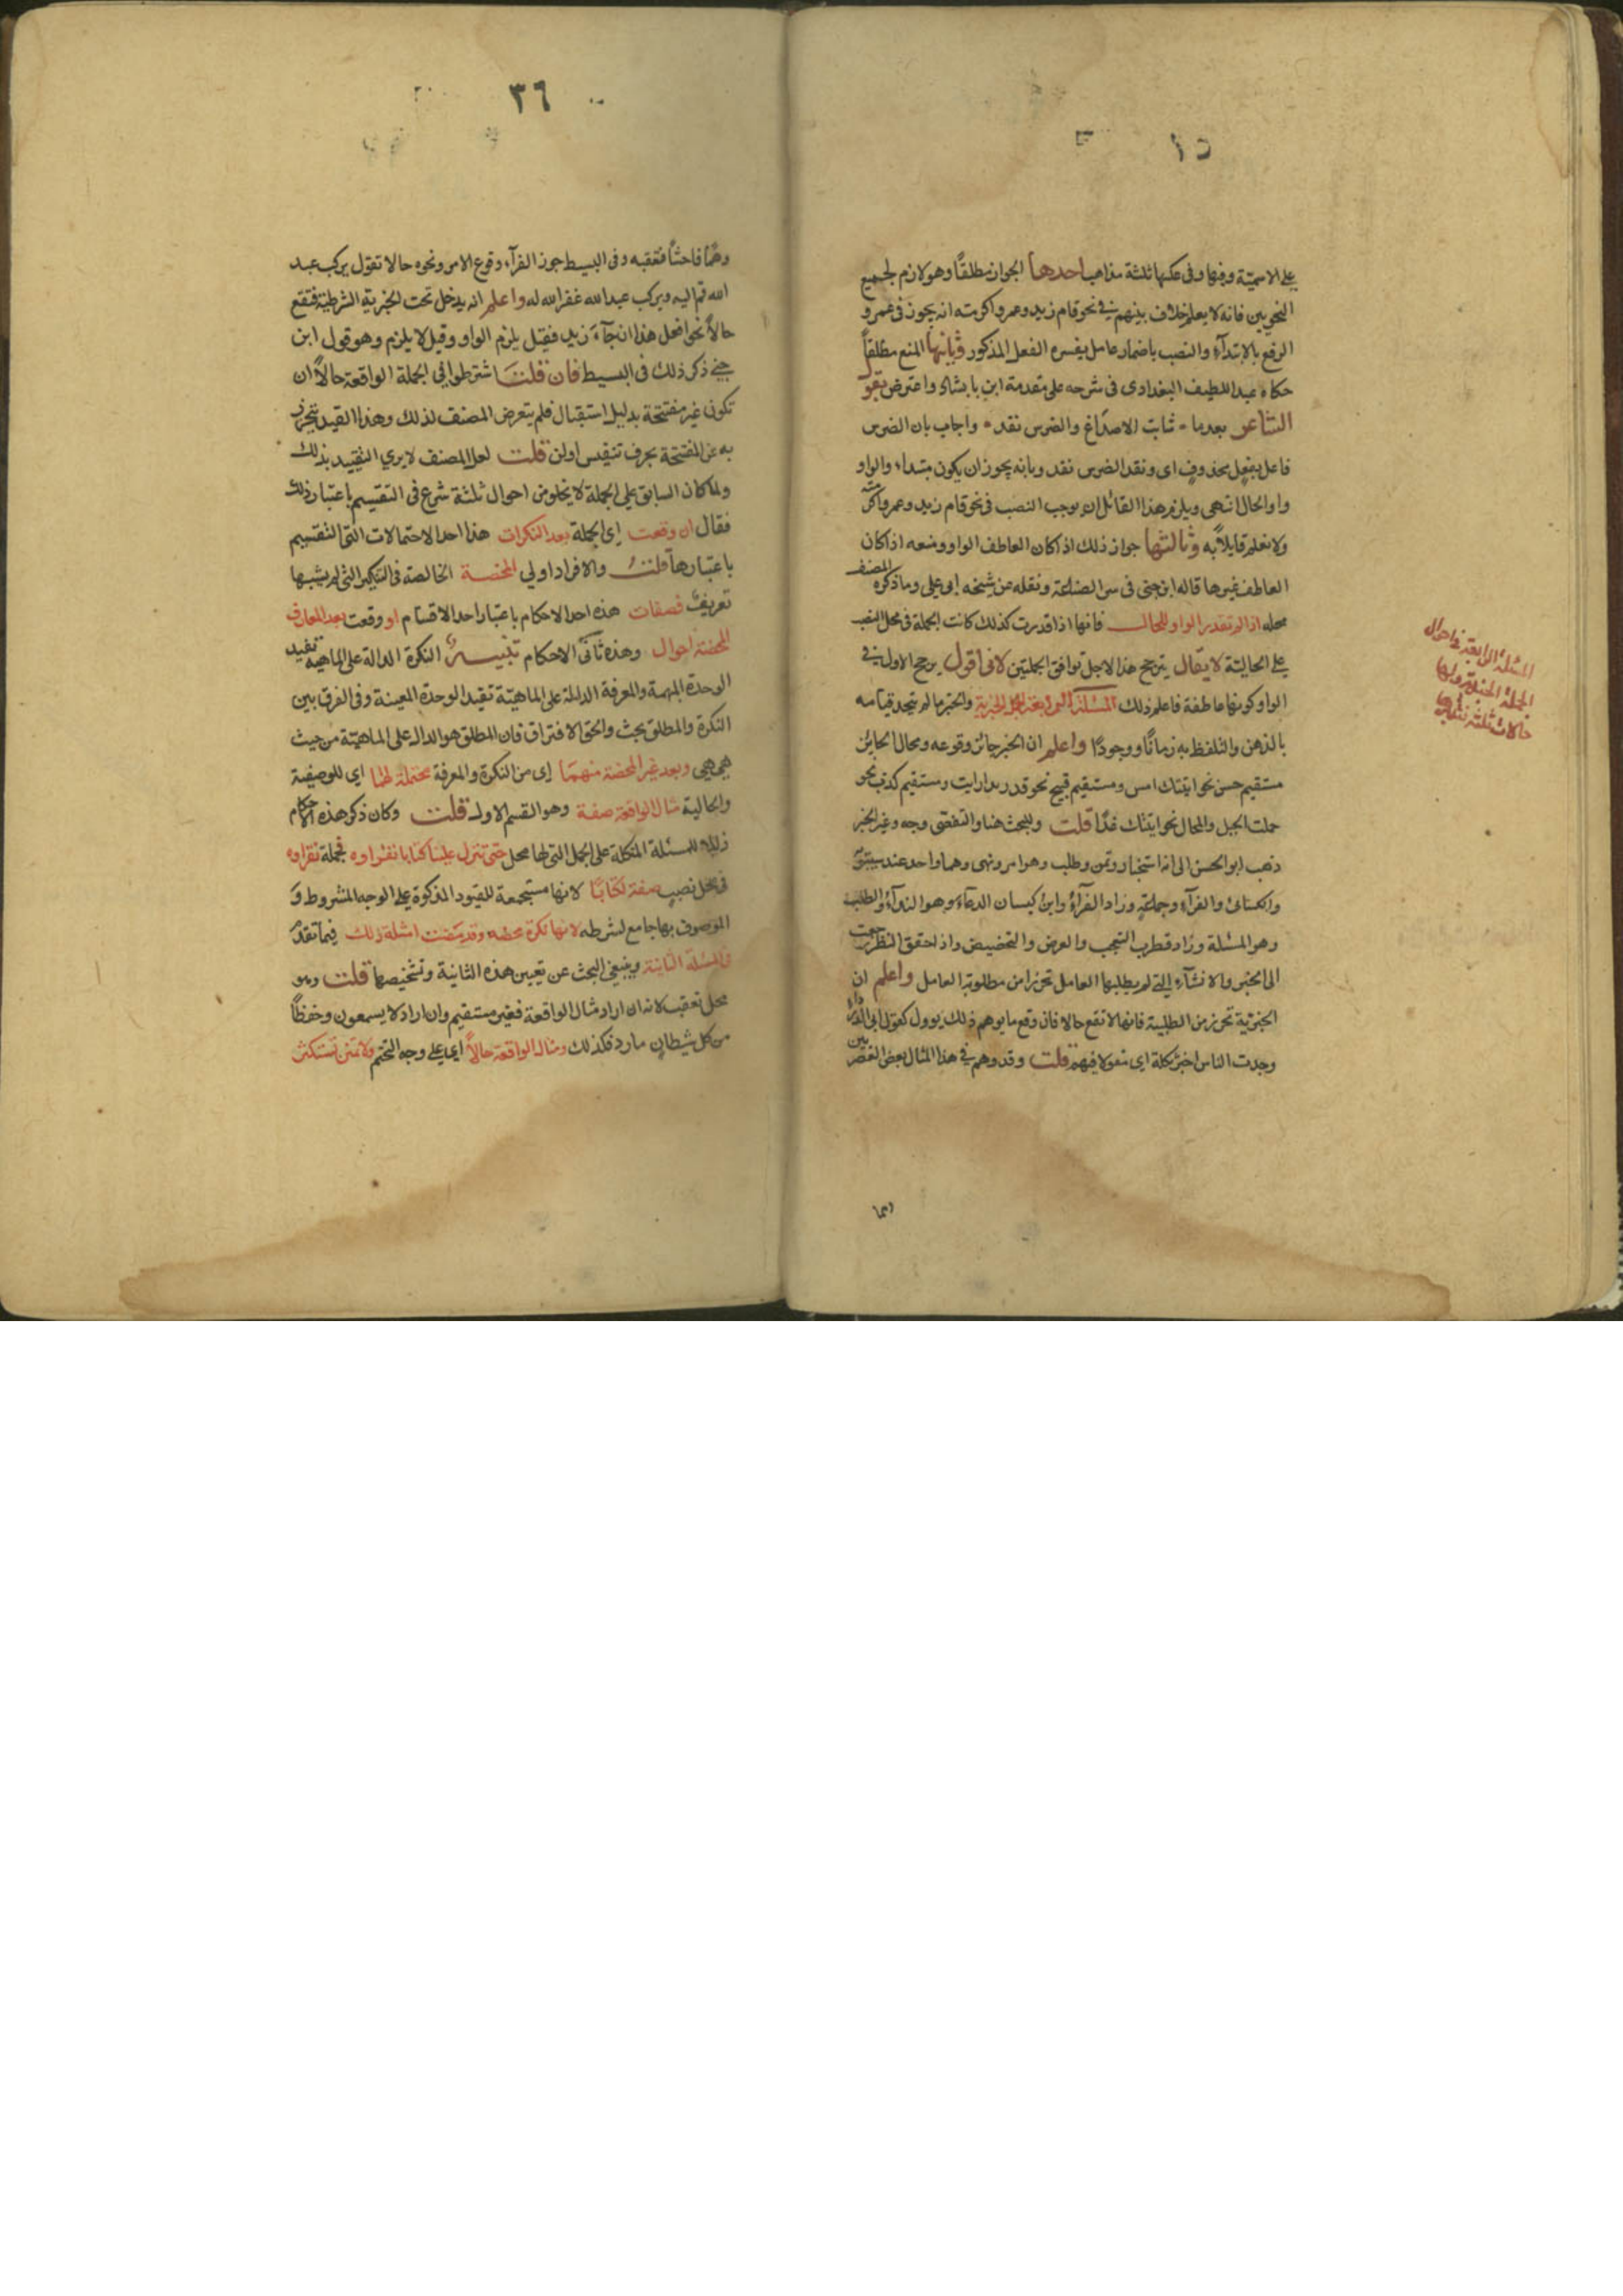 على الاسمية وفيها وفى عكسها ثلثة مذاهب احدها الجواز مطلقًا وهو لازم لجميع
النحويين فانه لا يعلم خلاف بينهم في نحو قام زيد وعمرو اكرمته انه يجوز فى عمرو
الرفع بالابتدآء والنصب باضمار عامل يفسره الفعل المذكور وثانيها المنع مطلقًا
حكاه عبد اللطيف البغدادى فى شرحه على مقدمة ابن بابشاد واعترض بقو
الشاعر بعدما شابت الاصداغ والضرس نقد واجاب بان الضرس
فاعل بفعل محذوف اى ونقد الضرس نقد وبانه يجوز ان يكون مبتداء والواو
واو الحال انتهى ويلزم هذا القائل ان يوجب النصب فى نحو قام زيد وعمرو اكرمته
ولا نعلم قايلًا به وثالثها جواز ذلك اذا كان العاطف الواو ومنعه اذا كان
العاطف غيرها قاله ابن جنى فى سر الصناعة ونقله عن شيخه ابو على وما ذكره المصنف
محله اذا لم تقدر الواو للحال فانها اذا قدرت كذلك كانت الجملة فى محل النصب
على الحالية لا يقال يترجح هذا لاجل توافق الجملتين لانى اقول يرجح الاول في
الواو كونها عاطفة فاعلم ذلك المسئلة الرابعة الجمل الخبرية والخبر ما لم يتحد قيامه
بالذهن والتلفظ به زمانًا ووجودًا واعلم ان الخبر جائز وقوعه ومحال الجايز
مستقيم حسن نحو اتيتك امس ومستقيم قبيح نحو قد زيدا رايت ومستقيم كذب نحو
حملت الجبل والمحال نحو اتيتك غدًا قلت وللبحث هنا والتفصى وجه وغير الخبر
ذهب ابو الحسن الى انه استخبار وتمن وطلب وهو امر ونهى وهما واحد عند سيبويه
والكسائى والفرآء وجماعة وزاد الفرآء وابن كيسان الدعآء وهو الندآء والطلب
وهو المسئلة وزاد قطرب التعجب والعرض والتحضيض واذا حقق النظر رجعت
الى الخبر والانشآء التي لم يطلبها العامل تحرزا من مطلوبة العامل واعلم ان
الخبرية تحرز من الطلبية فانها لا تقع حالا فان وقع ما يوهم ذلك يوول كقول ابى الدرداء
وجدت الناس اخبر تقله اى مقولا فيهم قلت وقد وهم في هذا المثال بعض القصر
وهما
المسئلة الرابعة فى احوال
الجملة الخبرية ولها
حالات ثلثة
٣٦
وهمًا فاحشًا فتعقبه وفى البسيط جوز الفرآء وقوع الامر ونحوه حالا تقول يركب عبد
الله قم اليه ويركب عبد الله غفر الله له واعلم انه يدخل تحت الخبرية الشرطية فتقع
حالًا نحو افعل هذا ان جآء زيد فقيل يلزم الواو وقيل لا يلزم وهو قول ابن
جني ذكر ذلك فى البسيط فان قلت اشترطوا فى الجملة الواقعة حالًا ان
تكون غير مفتتحة بدليل استقبال فلم يتعرض المصنف لذلك وهذا القيد يتحرز
به عن المفتتحة بحرف تنفيس اولن قلت لعل المصنف لا يرى التقييد بذلك
ولما كان السابق على الجملة لا يخلو من احوال ثلثة شرع فى التقسيم باعتبار ذلك
فقال ان وقعت اى الجملة بعد النكرات هذا احد الاحتمالات التى التقسيم
باعتبارها قلت والافراد اولي المحضة الخالصة فى التنكير التى لم يشبها
تعريف فصفات هذه احد الاحكام باعتبار احد الاقسام او وقعت بعد المعارف
المحضة احوال وهذه ثانى الاحكام تنبيه النكرة الدالة على الماهية تفيد
الوحدة المبهمة والمعرفة الدالة على الماهية تفيد الوحدة المعينة وفى الفرق بين
النكرة والمطلق بحث والحق الافتراق فان المطلق هو الدال على الماهية من حيث
هى هى وبعد غير المحضة منهما اى من النكرة والمعرفة محتملة لهما اى للوصفية
والحالية مثال الواقعة صفة وهو القسم الاول قلت وكان ذكر هذه الاحكام
للمسئلة المتكلة على الجمل التى لها محل حتى تنزل علينا كتابا نقراوه فجملة نقراوه
فى محل نصب صفة لكتابًا لانها مستجمعة للقيود المذكورة على الوجه المشروط و
الموصوف بها جامع لشرطه لانها نكرة محضه وقد مضت امثلة ذلك فيما تقدم
فى المسئلة الثانية وينبغى البحث عن تعيين هذه الثانية وتشخيصها قلت وهو
محل تعقب لانه ان اراد مثال الواقعة فغير مستقيم وان اراد لا يسمعون وحفظًا
من كل شيطان مارد فكذلك ومثال الواقعة حالًا اى على وجه التحتم ولا تمنن تستكثر